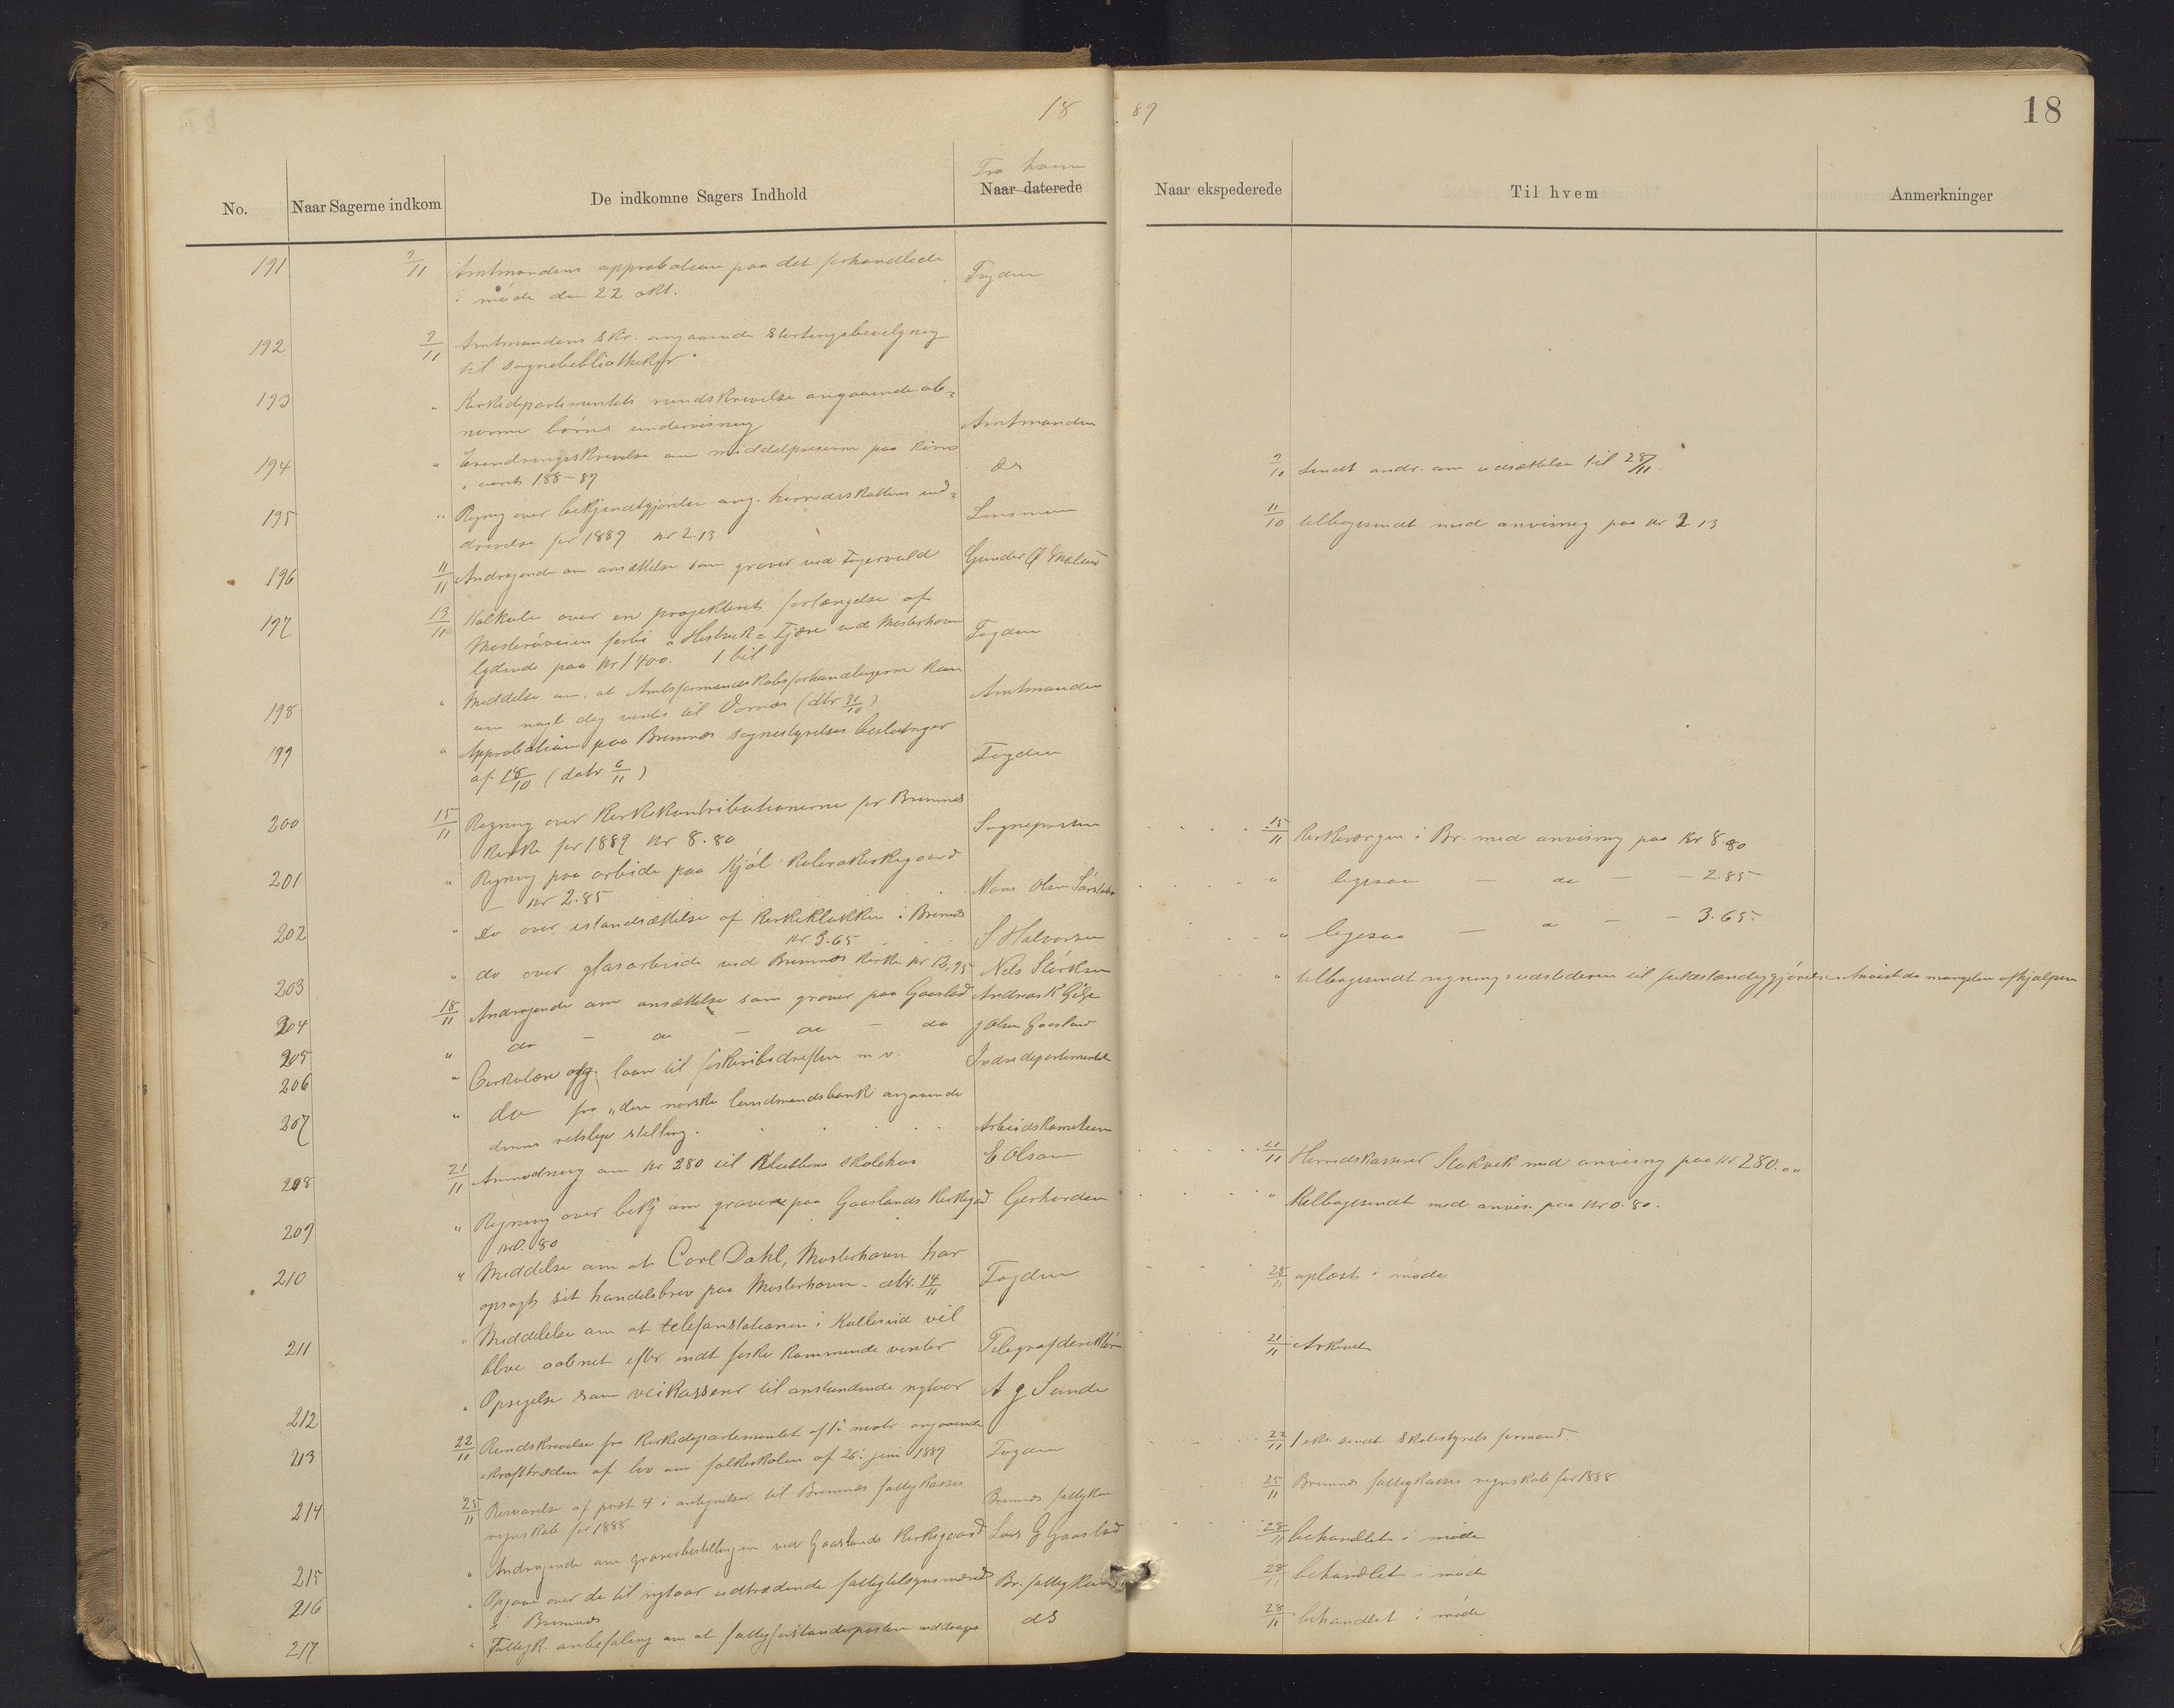 18
89
18
No.
Naar Sagerne indkom
De indkomne Sagers Indhold
Fra hvem
Naar daterede
Naar ekspederede
Til hvem
Anmerkninger
191 9/11 Amtmandens approbation paa det forhandlede Fogden
i møde den 22 okt.
192 9/11 Amtmandens skr. angaaende stortingsbevilgning
til sognebibliotheker
193 " Kirkedepartementets rundskrivelse angaaende ab=
norme börns undervisning Amtmanden
194 " Erindringsskrivelse om middelpriserne paa korn ds 9/10 Sendt andr. om udsættelse til 28/11.
i aaret 188-89
195 " Regning over bekjendtgjörelse ang. herredsskattens ind= Lensmann 11/10 tilbagesendt med anvisning paa kr 2 13
drivelse for 1889 kr 2.13
196 11/11 Andragende om ansættelse som graver ved Fogervold Gunder
197 13/11 Kalkule over en projekteret forlængelse af
Mosteröveien forbi Hestvik = Tjære ved Mosterhavn Fogden
lydende paa kr 1400. 1 bil
198 " Meddelse om, at Amtsformandskabsforhandlingerne kan Amtmanden
om nogle dage ventes til (dtr 31/10)
199 " Approbation paa Bremnes sognestyrelses beslutninger Fogden
af 18/10 (datr 6/11)
200 15/11 Regning over Kirkekontributionerne for Bremnes Sognepresten 15/11 Kirkevergen i Br. med anvisning paa Kr 8.80
Kirke for 1889 kr 8.80
201 " Regning paa arbeide paa Kjöl Kolerakirkegaard Mons Olsen " ligesaa - do - - 2.85
- kr 2.85
202 " do over istandsættelse af kirkeklokken i Bremnes S Halvorsen " ligesaa - " - - 3.65
kr 3.65
203 " do over glasarbeide ved Bremnes kirke kr 12,95 Nils Störksen " tilbagesendt regningsudstederen til fuldstændiggjörelse Anvist da mangelen afhjulpen
204 18/11 Andragende om ansættelse som graver paa Gaasland Andreas K Gilje
205 " do - do - do - do J Olsen Gaasland
206 " Cirkulære ang. laan til fiskeribedriften m v. Indredepartementet
207 " do fra "den norske landmandsbank angaaende
dennes retslige stilling. Arbeidskomiteen
208 21/11 Anmodning om kr 280 til Klubbens skolehus E Olson 21/11 Herredskasserer Stokvik med anvisning paa kr 280.00
209 " Regning over bekj om gravere paa Gaaslands kirkegd Gerhardsen " tilbagesendt med anvis. paa kr 0.80.
kr 0.80
210 " Meddelse om at Carl Dahl, Mosterhavn har Fogden 28/11 oplæst i møde
opsagt sit handelsbrev paa Mosterhavn - dtr. 14/11
211 " Meddelelse om at telefonstationen i Kallesund vil
blive aabnet efter endt fiske kommende vinter Telegrafdirektör 21/11 Arkivet
212 " Opsigelse som veikasserer til anstundende nytaar A g Sunde
213 22/11 Rundskrivelse fra Kirkedepartementet af 1ste novbr angaaende 22/11 1 eks. sendt Skolestyrets formand.
ikrafttræden af lov om folkeskolen af 26. juni 1889 Fogden
214 25/11 Besvarelse af post 4 i antegnelser til Bremnes fattigkasses Bremnes fattigkom 25/11 Bremnes fattigkasses regnskab for 1888
regnskab for 1888
215 " Andragende om graverbestillingen ved Gaaslands kirkegaard Lars G Gaasland 28/11 behandlet i møde
216 " Opgave over de til nytaar udtrædende fattigtilsynsmænd Br. fattigkom 28/11 behandlet i møde
i Bremnes
217 " Fattigk. anbefaling om at fattigforstanderposten inddrages ds 28/11 behandlet i møde